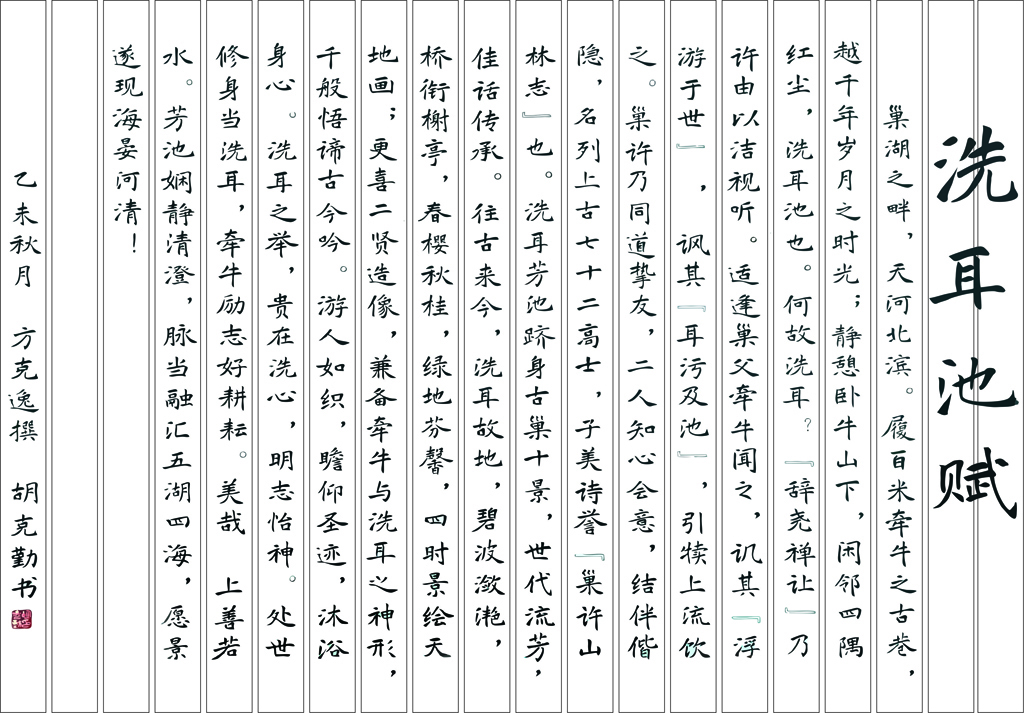 洗耳池赋
巢湖之畔，天河北滨。履百米牵牛之古巷，
越千年岁月之时光；静憩卧牛山下，闲邻四隅
红尘，洗耳池也。何故洗耳？『辞尧禅让』乃
许由以洁视听。适逢巢父牵牛闻之，讥其『浮
游于世』，讽其『耳污及池』，引犊上流饮
之。巢许乃同道挚友，二人知心会意，结伴偕
隐，名列上古七十二高士，子美诗誉『巢许山
林志』也。洗耳芳池跻身古巢十景，世代流芳，
佳话传承。往古来今，洗耳故地，碧波潋滟，
桥衔榭亭，春樱秋桂，绿地芬馨，四时景绘天
地画；更喜二贤造像，兼备牵牛与洗耳之神形，
千般悟谛古今吟。游人如织，瞻仰圣迹，沐浴
身心。洗耳之举，贵在洗心，明志怡神。处世
修身当洗耳，牵牛励志好耕耘。美哉 上善若
水。芳池娴静清澄，脉当融汇五湖四海，愿景
遂现海晏河清！
乙未秋月 方克逸撰 胡克勤书